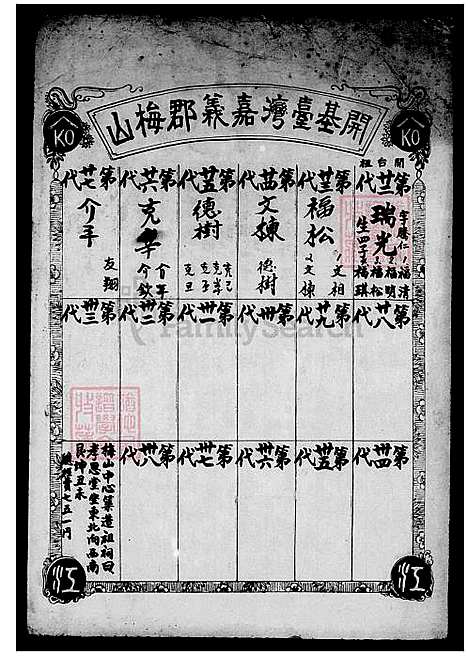 開基臺灣嘉義郡梅山
KO
KO
開台祖
第廿二代
瑞光
字騰仁
生四子
福清
福明
福松
福琪
第廿三代
福松
文相
文棟
第廿四代
文棟
德樹
第廿五代
德樹
克己
克孝
克子
克丑
第廿六代
克孝
介平
今欽
第廿七代
介平
友翔
第廿八代
第廿九代
第卅代
第卅一代
第卅二代
第卅三代
第卅四代
第卅五代
第卅六代
第卅七代
第卅八代
梅山中心築造祖祠曰
孝思堂坐東北向西南
艮坤丑未
費七五一円
江
江
FamilySearch